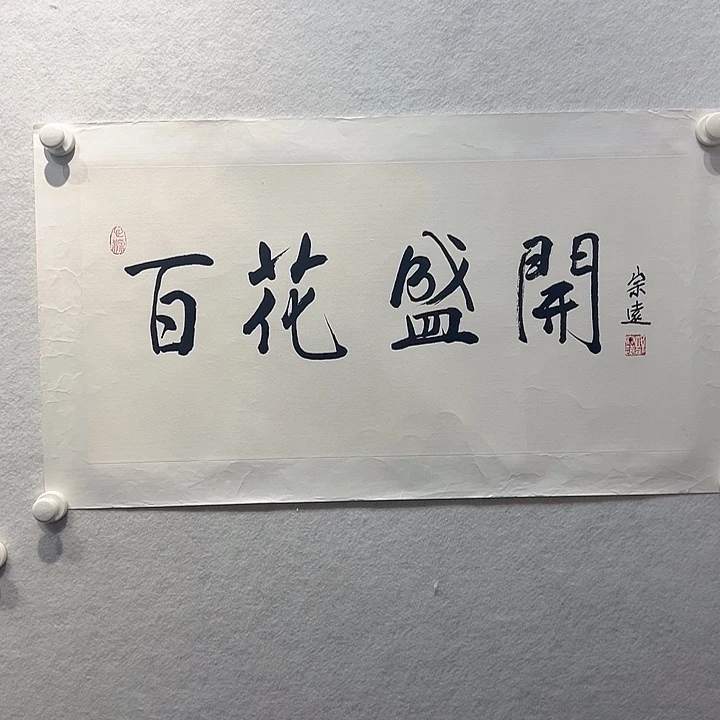 百花盛開
崇遠